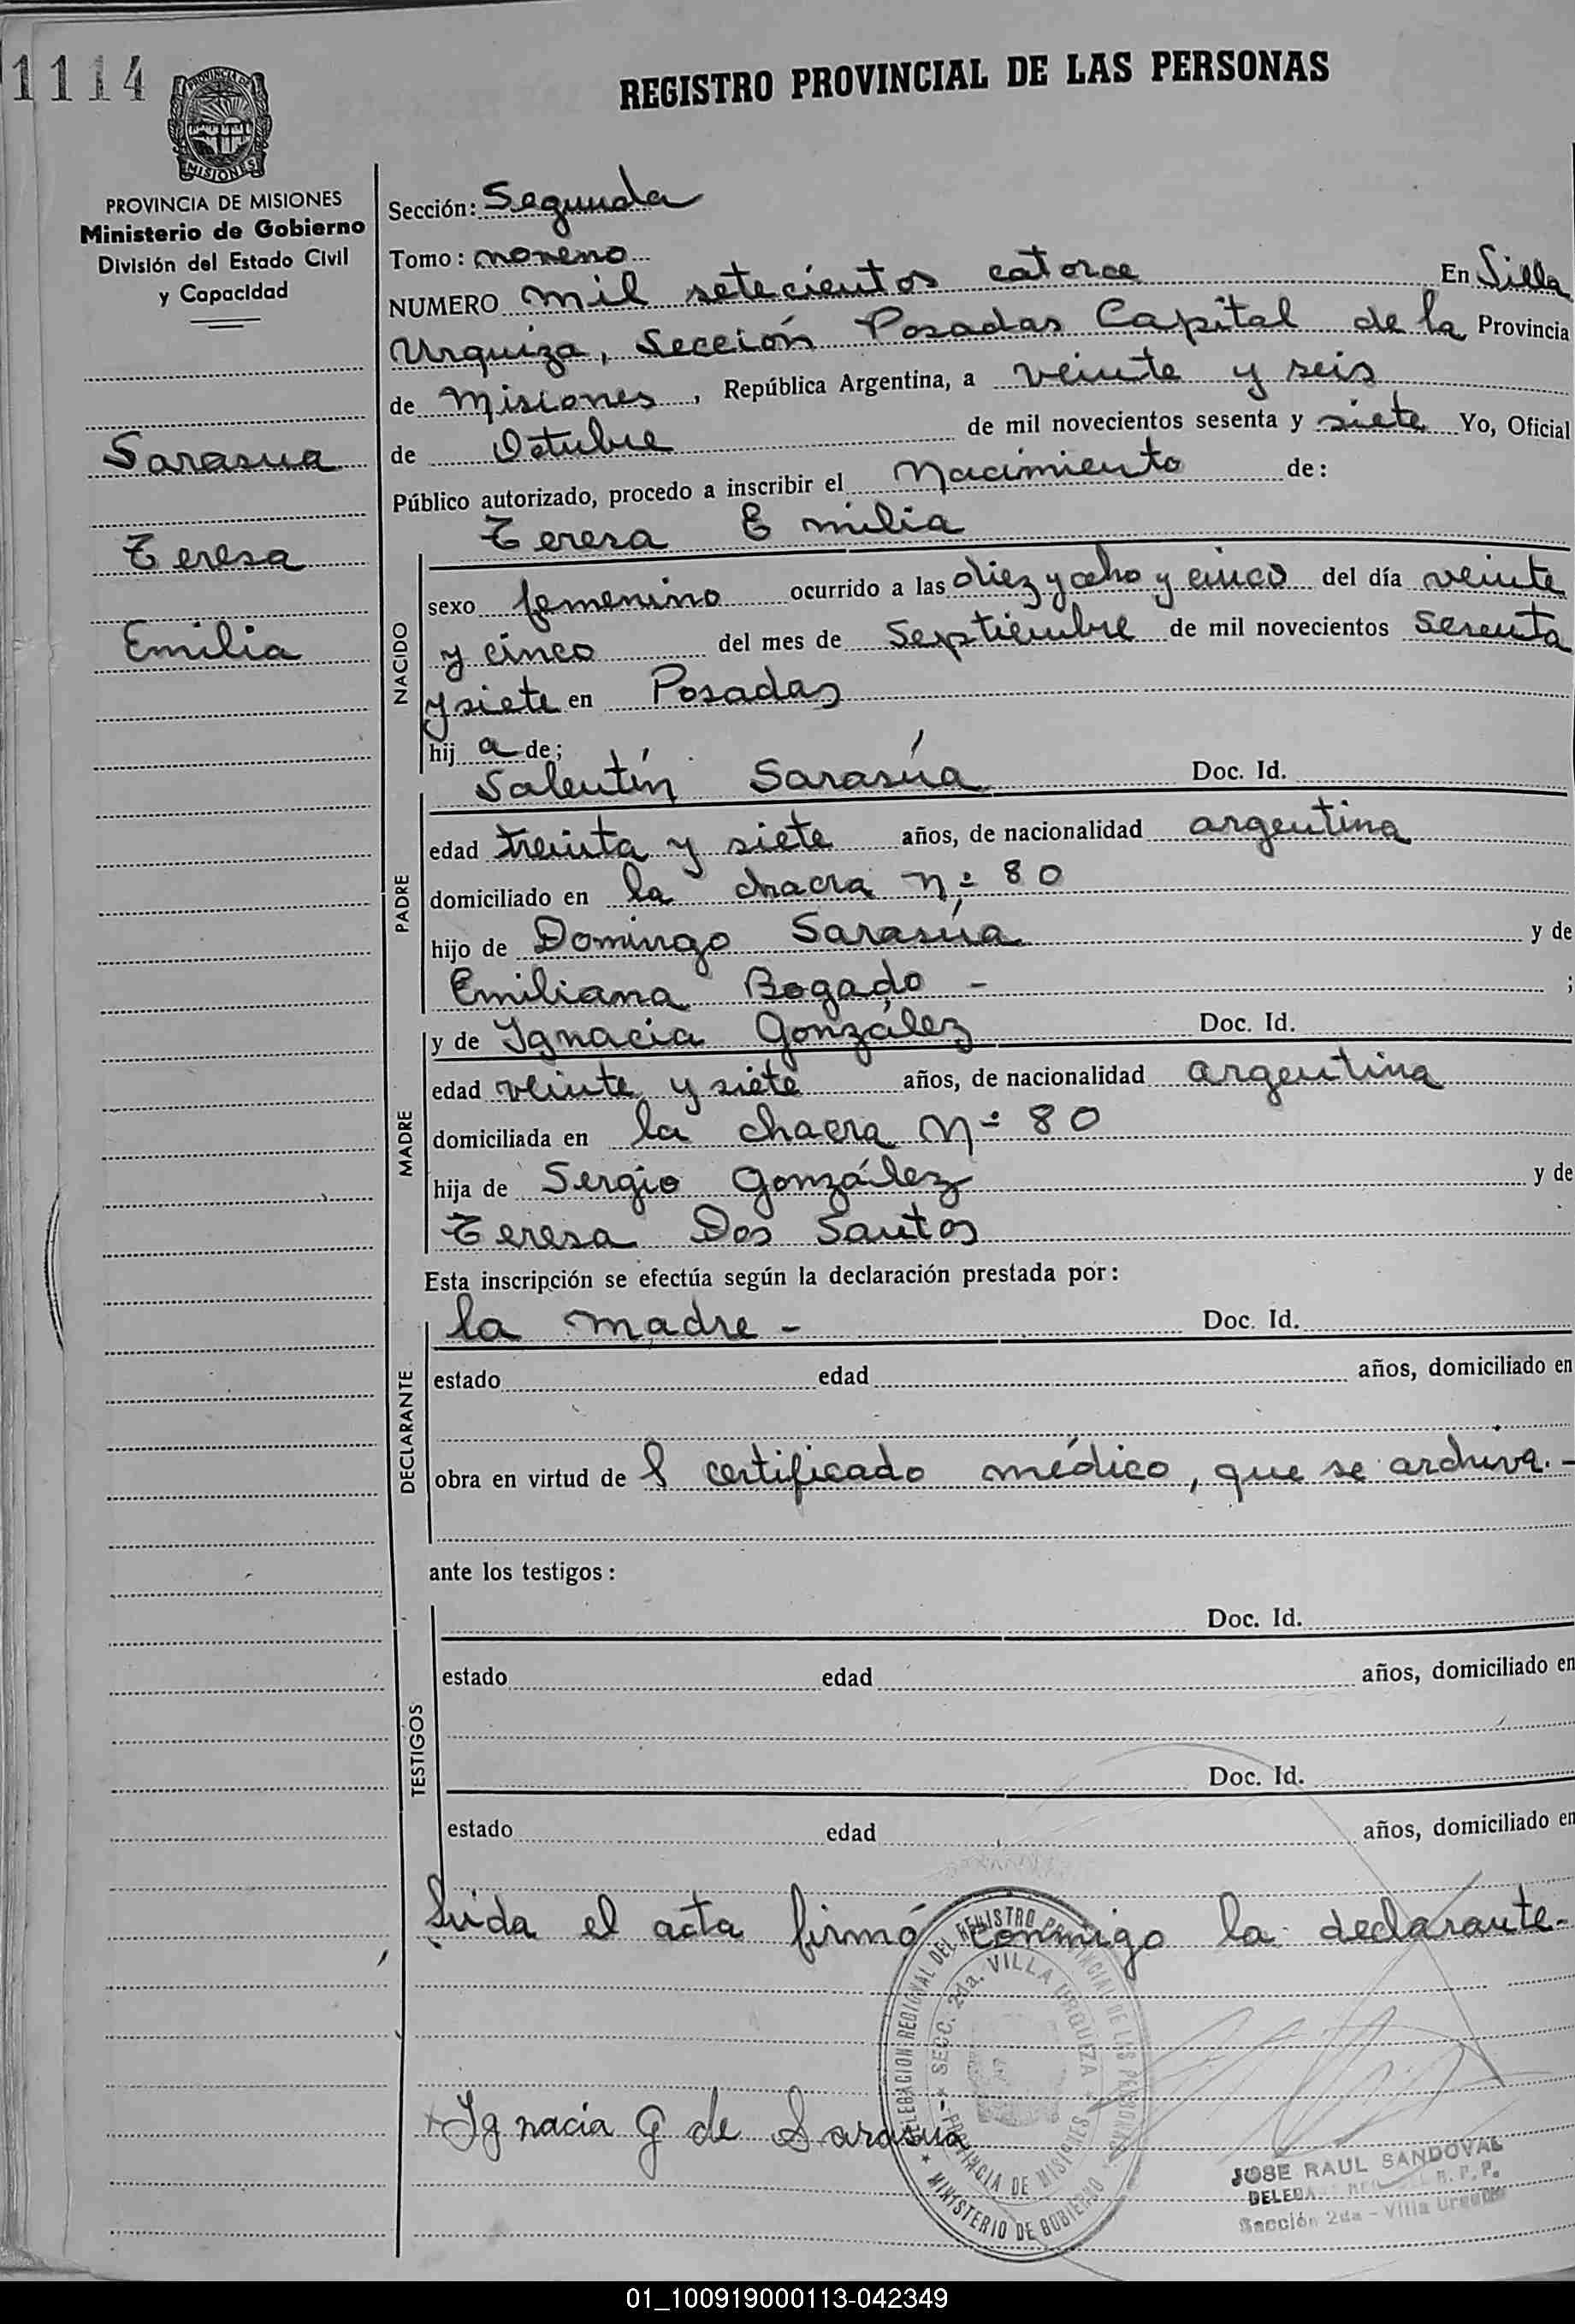 1114
REGISTRO PROVINCIAL DE LAS PERSONAS
PROVINCIA DE MISIONES
MISIONES
PROVINCIA DE MISIONES
Ministerio de Gobierno
División del Estado Civil
y Capacidad
Sarasua
Teresa
Emilia
Sección: Segunda
Tomo: noveno
NUMERO mil setecientos catorce En Villa
Urquiza, Sección Posadas Capital de la Provincia
de Misiones, República Argentina, a veinte y seis
de Octubre de mil novecientos sesenta y siete Yo, Oficial
Público autorizado, procedo a inscribir el Nacimiento de:
NACIDO
Teresa Emilia
sexo femenino ocurrido a las diez y ocho y cinco del día veinte
y cinco del mes de Septiembre de mil novecientos sesenta
y siete en Posadas
hij a de;
PADRE
Valentín Sarasúa Doc. Id.
edad treinta y siete años, de nacionalidad argentina
domiciliado en la chacra nº 80
hijo de Domingo Sarasúa y de
Emiliana Bogado - ;
MADRE
y de Ignacia González Doc. Id.
edad veinte y siete años, de nacionalidad argentina
domiciliada en la chacra nº 80
hija de Sergio González y de
Teresa Dos Santos
Esta inscripción se efectúa según la declaración prestada por:
DECLARANTE
la madre - Doc. Id.
estado edad años, domiciliado en
obra en virtud de l certificado médico, que se archiva.-
ante los testigos:
TESTIGOS
Doc. Id.
estado edad años, domiciliado en
Doc. Id.
estado edad años, domiciliado en
Leida el acta firmó conmigo la declarante.-
DELEGACION REGIONAL DEL REGISTRO PROVINCIAL DE LAS PERSONAS
SECC. 2da. VILLA URQUIZA
PROVINCIA DE MISIONES
MINISTERIO DE GOBIERNO
Ignacia G de Sarasua
JOSE RAUL SANDOVAL
R. P. P.
Sección 2da - Villa Urquiza
01_100919000113-042349